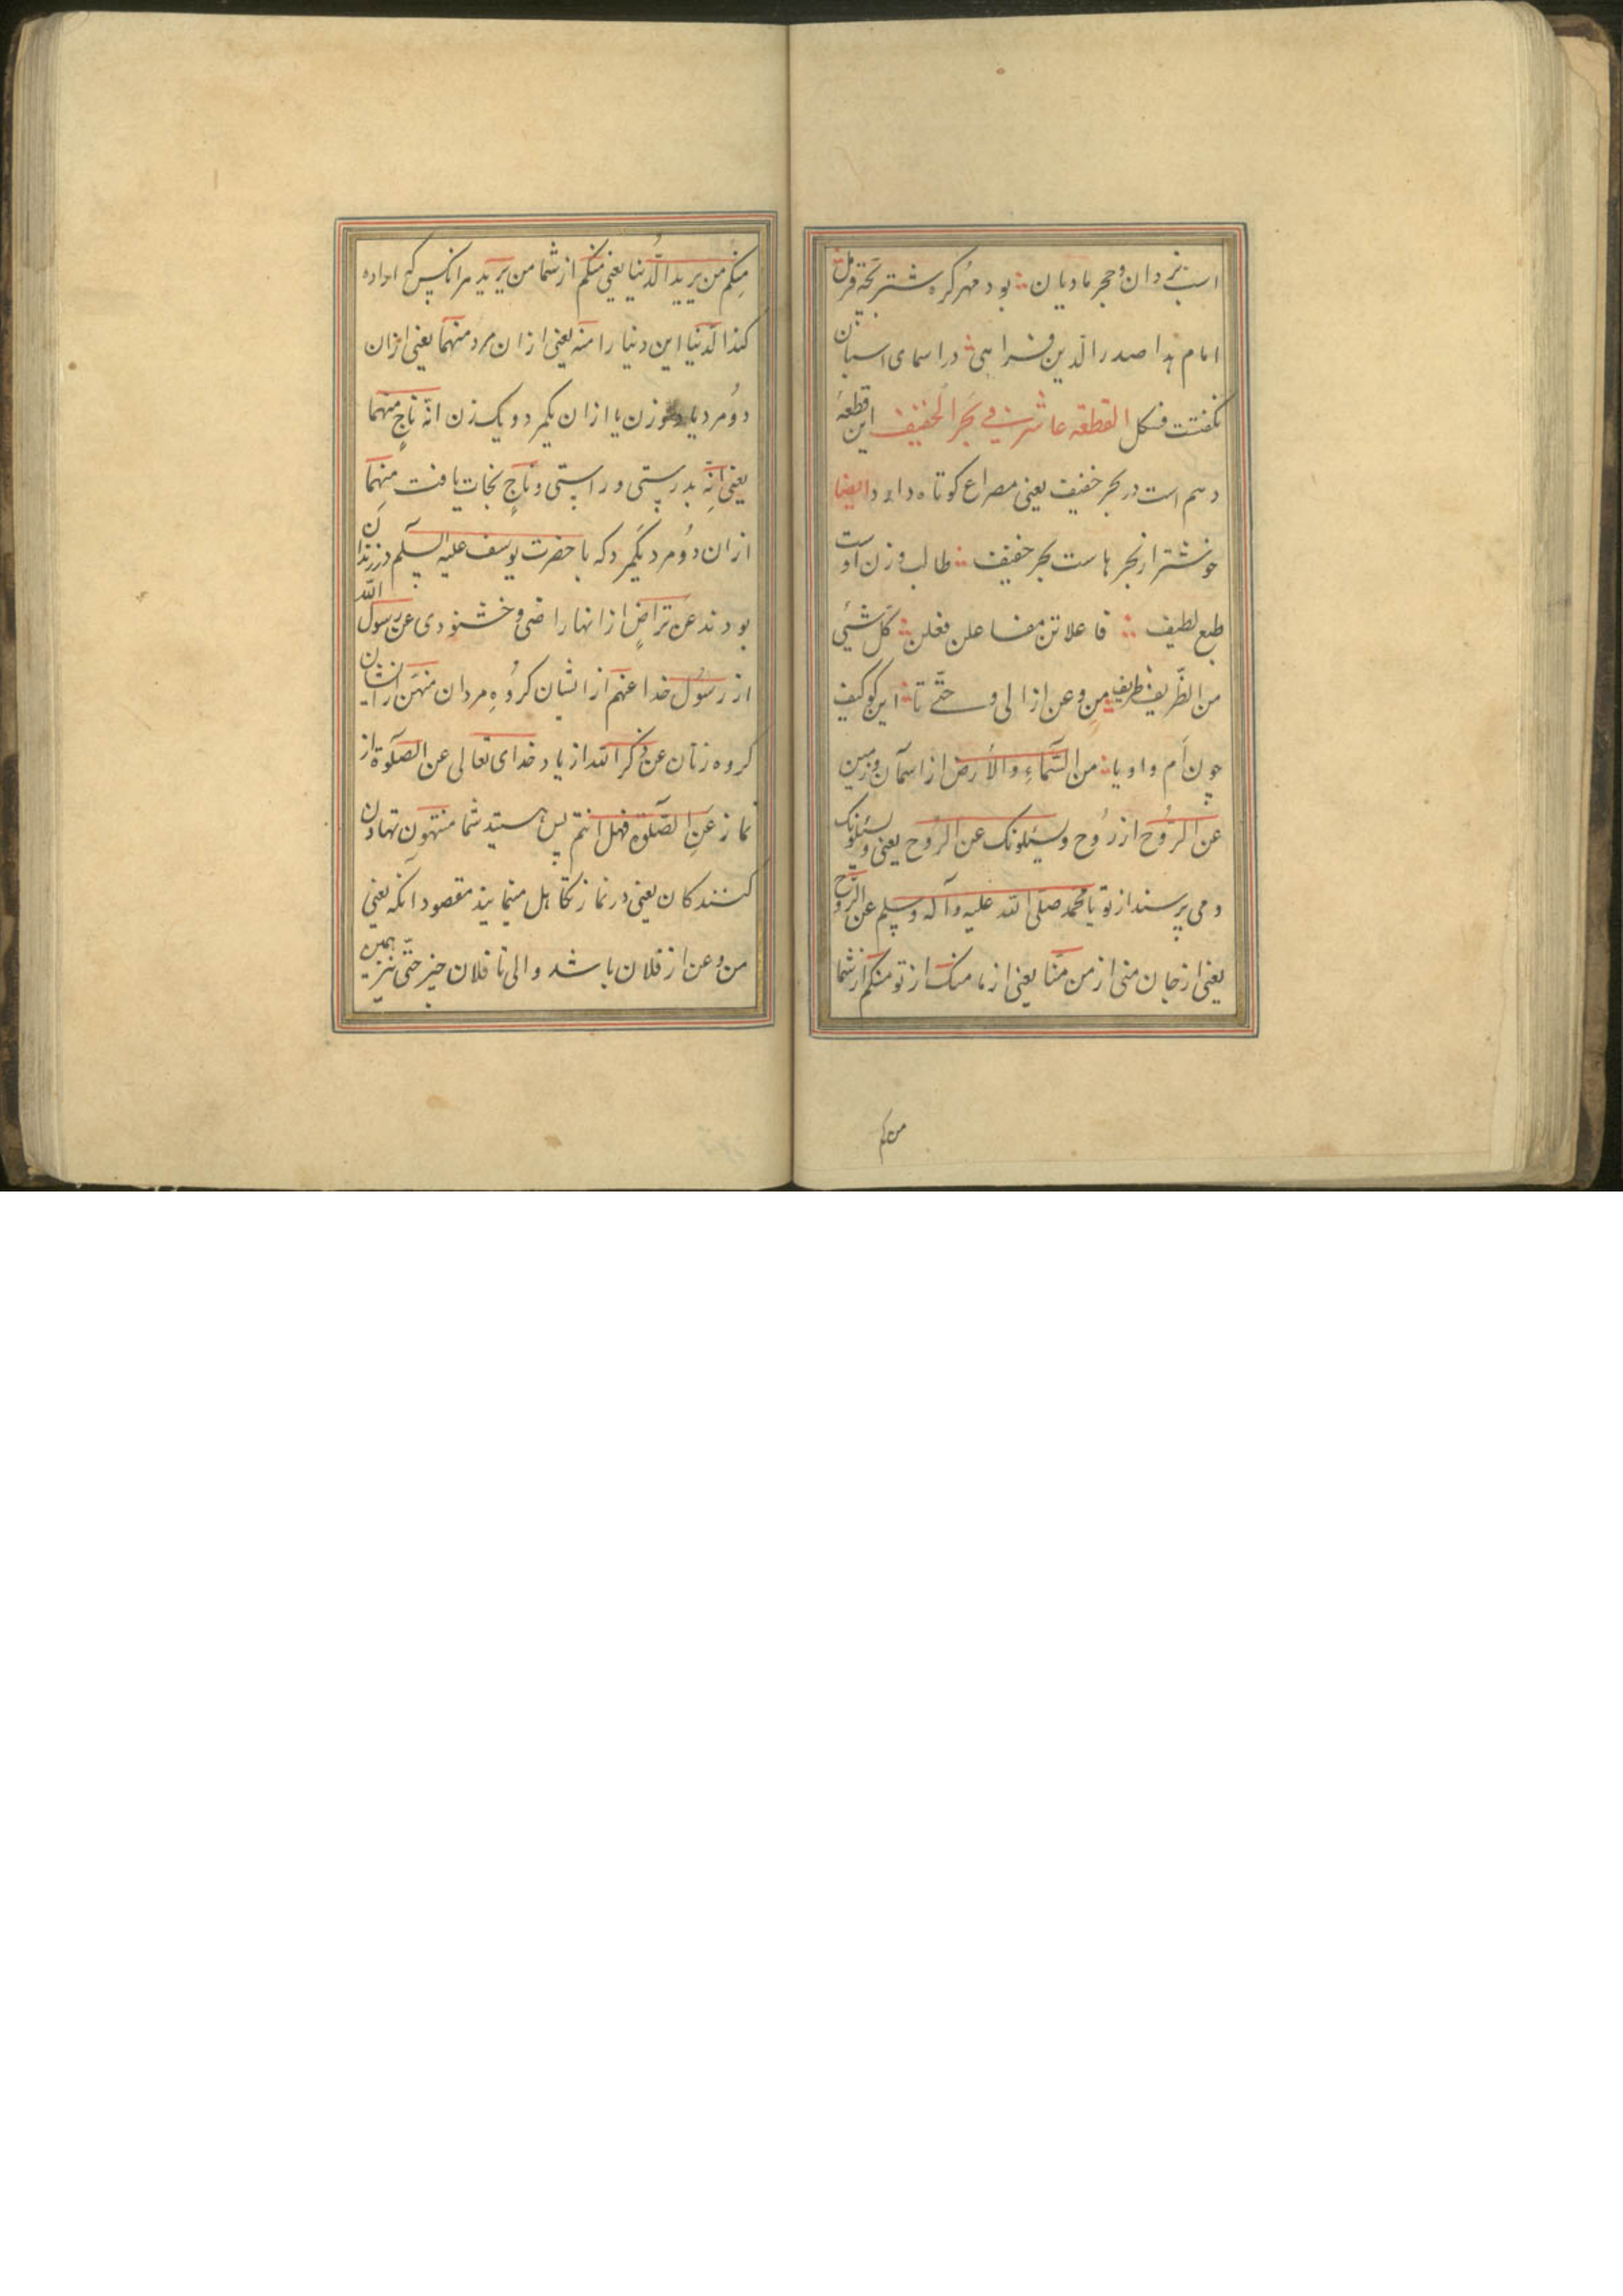 اسب نر دان و حجر مادیان ؞ بود مهر کره شتر بخته قرمل
امام هدا صدر الدین فراهی ؞ در اسمای اسبان
نکفتت فسکل القطعه عاشرت فی بحر الخفیف این قطعهٔ
دهم است در بحر خفیف یعنی مصراع کوتاه دارد ایضا
خوشتر از بحرهاست بحر خفیف ؞ طالب وزن اوست
طبع لطیف ؞ فاعلاتن مفاعلن فعلن ؞ کل شیئی
من الظریف ظریف من و عن از الی و حتّی تا ؞ این کو کیف
چون اَم و او یا ؞ من السَّماءِ والاَرض از اسمان و زمین
عن الرُّوح از رُوح و یسئلونک عن الرُّوح یعنی و یسئلونک
و می پرسند از تو یا محمد صلی الله علیه و آله و سلم عن الرُّوح
یعنی از جان منی از من منّا یعنی از ما منک از تو منکم از شما
من کم
مِنکُم من یرید الدُّنیا یعنی منکم از شما من یرید هر انکس که اراده
کند الدّنیا این دنیا را منه یعنی از ان مرد منهما یعنی از ان
دو مرد یا دو زن یا از ان یکمرد و یک زن انّه ناجٍ منهما
یعنی اِنّه بدرستی و راستی و ناجٍ نجات یافت مِنهما
از ان دو مرد یکمرد که با حضرت یوسف علیه السلم در زندان
بودند عن تراضٍ از انها راضی و خشنودی عن رسول الله
از رسول خدا عنهم از ایشان کروُهِ مردان منهنّ از ایشان
کروه زنان عن ذکر الله از یاد خدای تعالی عن الصّلوة از
نماز عَنِ الصّلوة فهل انتم پس هستید شما منتهون تهاون
کنندکان یعنی در نماز تکاهل مینمایید مقصود انکه یعنی
من و عن از فلان باشد و الی تا فلان چیز حتّی نیز همین